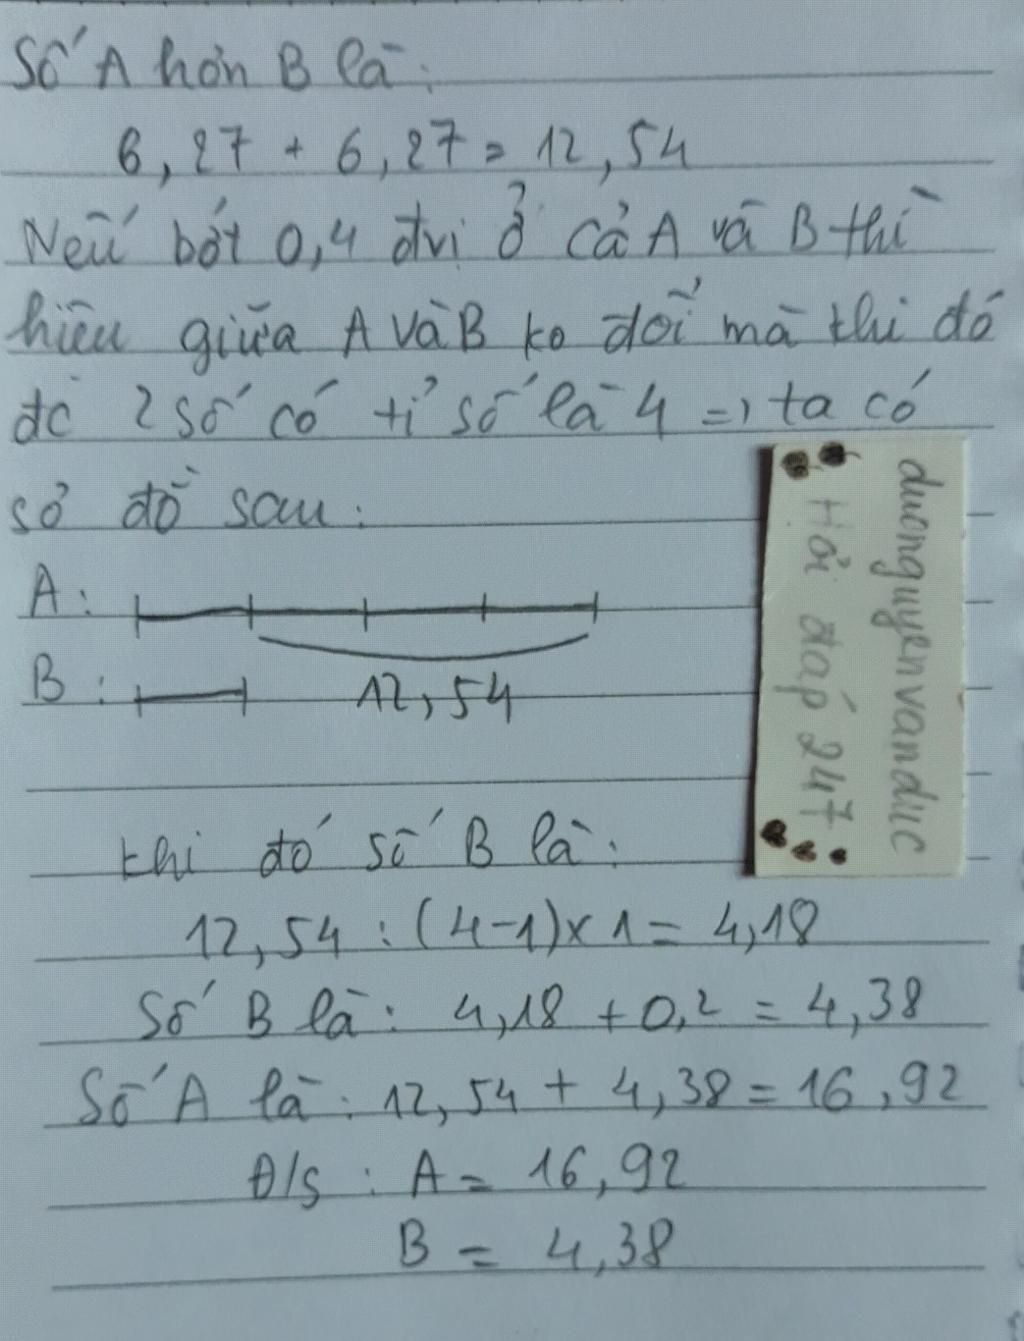 Số A hơn B là:
6,27 + 6,27 = 12,54
Nếu bớt 0,4 đvị ở cả A và B thì
hiệu giữa A và B ko đổi mà khi đó
đc 2 số có tỉ số là 4 => ta có
sơ đồ sau:
A:
B:
12,54
khi đó số B là:
12,54 : (4-1)x1 = 4,18
Số B là: 4,18 + 0,2 = 4,38
Số A là: 12,54 + 4,38 = 16,92
Đ/S: A = 16,92
B = 4,38
duongnguyenvanduc
Hỏi đáp 247